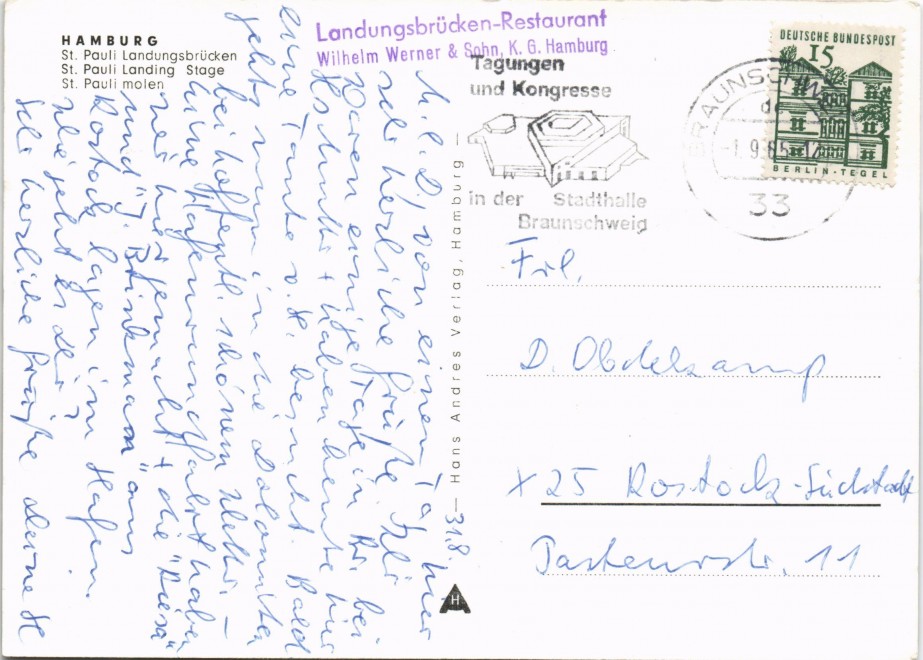 HAMBURG
St. Pauli Landungsbrücken
St. Pauli Landing Stage
St. Pauli molen
Landungsbrücken-Restaurant
Wilhelm Werner & Sohn, K. G. Hamburg
Tagungen
und Kongresse
in der Stadthalle
Braunschweig
BRAUNSCHW
-1.9.65
33
DEUTSCHE BUNDESPOST
15
BERLIN-TEGEL
31.8.
von einem Tag hier
sehr herzliche Grüße. Wir
waren einige Tage in bei
+ haben heute hier
eine Tante v. H. besucht. Bald
geht's nun in die Dolomiten
bei hoffentl. schönem Wetter.
Eine Hafenrundfahrt haben
wir hier gemacht + die "Riesa"
und "J. Brinkmann" aus
Rostock lagen im Hafen.
Wie geht es Dir?
Sehr herzliche Grüße deine
Frl.
D. Obdekamp
X25 Rostock-Südstadt
Pasteurstr. 11
Hans Andres Verlag, Hamburg
H